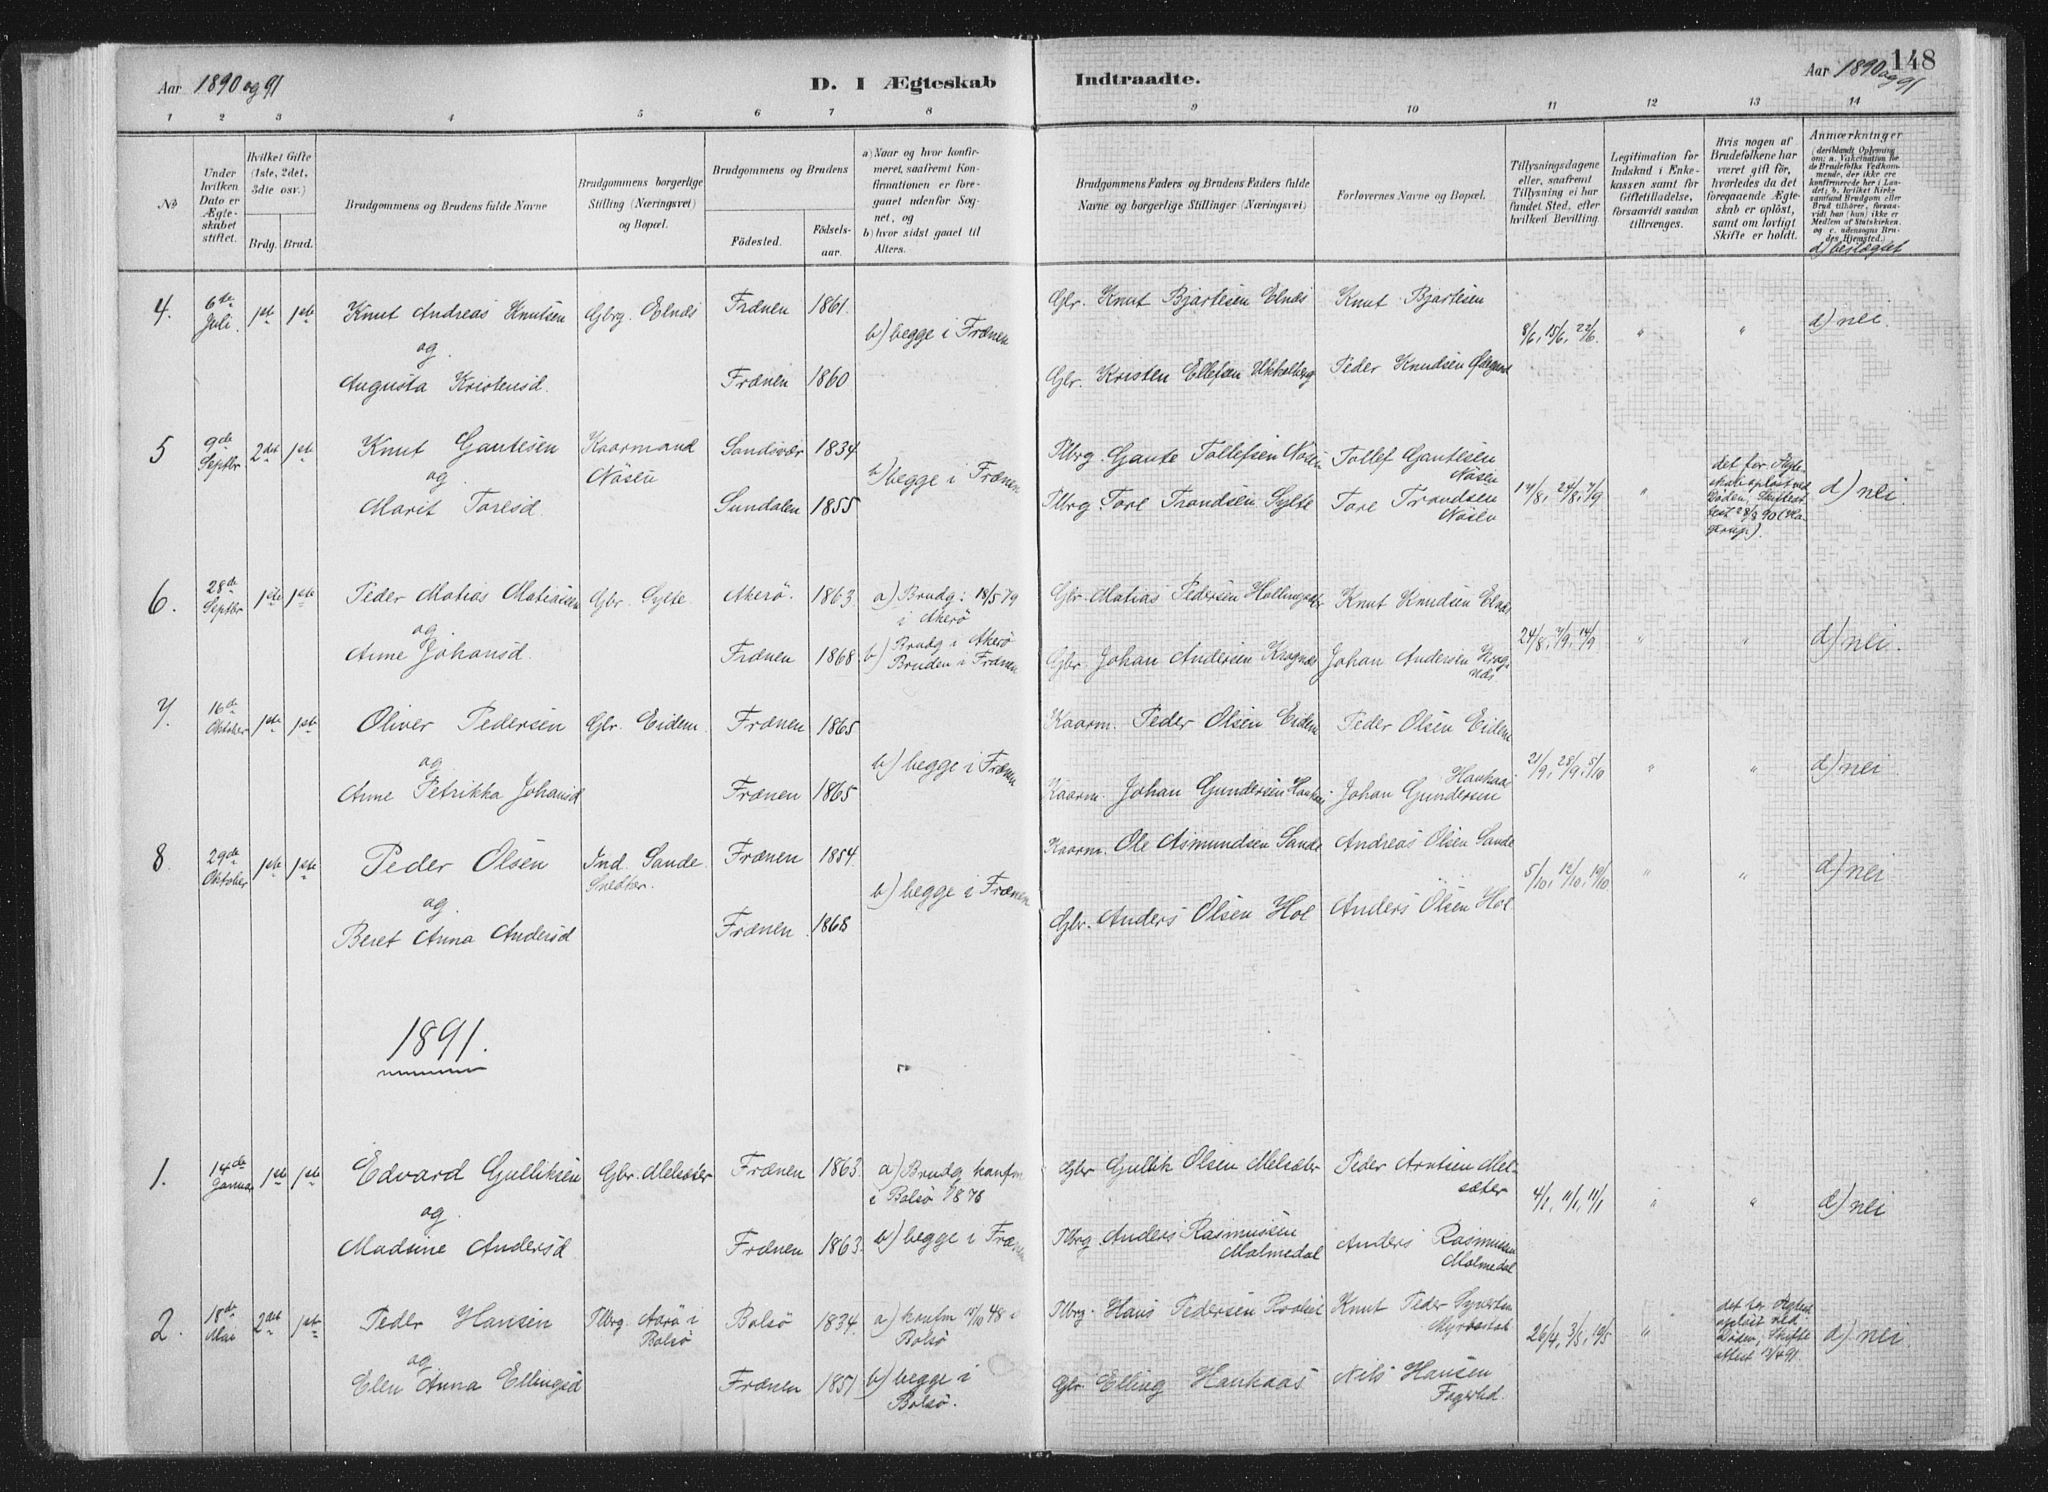 Aar 1890 og 91
D. I Ægteskab Indtraadte.
Aar 1890 og 91
148
1 2 3 4 5 6 7 8 9 10 11 12 13 14
No.
Under hvilken Dato er Ægteskabet stiftet.
Hvilket Gifte (1ste, 2det, 3die osv.)
Brdg. Brud.
Brudgommens og Brudens fulde Navne
Brudgommens borgerlige Stilling (Næringsvei) og Bopæl.
Brudgommens og Brudens
Fødested. Fødselsaar.
a) Naar og hvor konfirmeret, saafremt Konfirmationen er foregaaet udenfor Sognet, og
b) hvor sidst gaaet til Alters.
Brudgommens Faders og Brudens Faders fulde Navne og borgerlige Stillinger (Næringsvei)
Forlovernes Navne og Bopæl.
Tillysningsdagene eller, saafremt Tillysning ei har fundet Sted, efter hvilken Bevilling.
Legitimation for Indskud i Enkekassen samt for Giftetilladelse, forsaavidt saadan tiltrænges.
Hvis nogen af Brudefolkene har været gift før, hvorledes da det foregaaende Ægteskab er opløst, samt om lovligt Skifte er holdt.
Anmærkninger
(deriblandt Oplysning om: a. Vaccination for de Brudefolks Vedkommende, der ikke ere konfirmerede her i Landet; b. hvilket Kirkesamfund Brudgom eller Brud tilhører, forsaavidt han (hun) ikke er Medlem af Statskirken. og c. udensogns Brudes Hjemsted.)
d) beslægtet
4. 6te Juli. 1ste 1ste Knut Andreas Knutsen Gbrg. Elnæs Frænen 1861. b) begge i Frænen Gbr. Knut Bjartesen Elnæs Knut Bjartesen 8/6, 15/6, 22/6. " " d) nei.
og
Augusta Kristensd. Frænen 1860 Gbr. Kristen Ellefsen Peder Knudsen
5 9de Septbr 2det 1ste Knut Gautesen Kaarmand Nøsen Sandsvær 1834 b) begge i Frænen Plbrg. Gaute Tollefsen Nøsen Tollef Gautesen Nøsen 17/8, 24/8, 7/9 " det før. Ægteskab opløst ved Døden, Skifteattest 28/8 90 d) nei
og
Marit Toresd. Sundalen 1855 Plbrg Tore Trondsen Sylte Tore Trondsen Nøsen
6. 28de Septbr 1ste 1ste Peder Matias Matiassen Gbr. Sylte Akerø. 1863. a) Brudg: 18/5 79 i Akerø Gbr. Matias Pedersen Knut Knudsen Elnæs 24/8, 7/9, 14/9 " " d) nei.
og
Anne Johansd. Frænen 1868. b) Brudg i Akerø Bruden i Frænen Gbr. Johan Andersen Krognæs Johan Andersen Krognæs
7. 16de Oktober 1ste 1ste Oliver Pedersen Gbr. Eidem. Frænen 1865 b) begge i Frænen Kaarm. Peder Olsen Eidem Peder Olsen Eidem 21/9, 28/9, 5/10 " " d) nei
og
Anne Petrikka Johansd Frænen 1865 Kaarm. Johan Gundersen Haukaas Johan Gundersen Haukaas
8. 29de Oktober 1ste 1ste Peder Olsen Ind. Sande Snedker. Frænen 1854. b) begge i Frænen Kaarm. Ole Asmundsen Sande Andreas Olsen Sande 5/10, 12/10, 19/10 " " d) nei
og
Beret Anna Andersd Frænen. 1868 Gbr. Anders Olsen Hol Anders Olsen Hol
1891.
1. 14de Januar 1ste 1ste Edvard Gulliksen Gbr. Melsæter Frænen 1863. a) Brudg konfm i Bolsø 1878 Gbr Gullik Olsen Melsæter Peder Arntsen Melsæter 4/1, 11/1, 11/1 " " d) nei
og
Madsine Andersd Frænen 1863. b) begge i Frænen Plbrg. Anders Rasmussen Malmedal Anders Rasmussen Malmedal
2. 18de Mai 2det 1ste Peder Hansen Plbrg. Aarø i Bolsø Bolsø 1834. a) konfm 15/10 48 i Bolsø Plbrg. Hans Pedersen Knut Peder 26/4, 3/5, 10/5 " det før. Ægtesk. opløst ved Døden, Skifteattest d) nei
og
Elen Anna Ellingsd Frænen 1851 b) begge i Bolsø. Gbr. Elling Haukaas Nils Hansen Fagerlid.